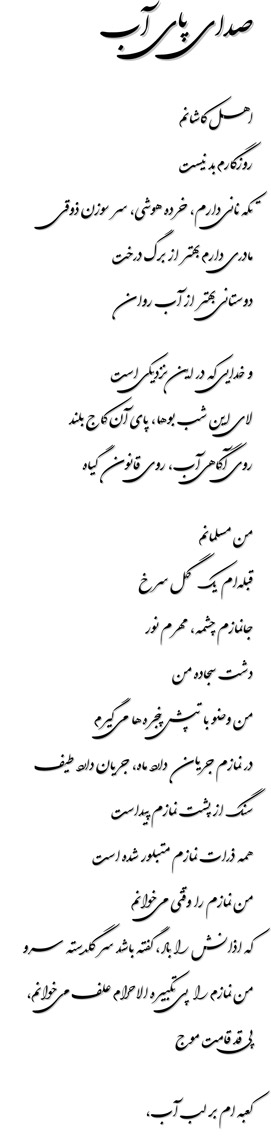 صدای پای آب
اهل کاشانم
روزگارم بد نیست
تکه نانی دارم، خرده هوشی، سر سوزن ذوقی
مادری دارم بهتر از برگ درخت
دوستانی بهتر از آب روان
و خدایی که در این نزدیکی است
لای این شب بوها، پای آن کاج بلند
روی آگاهی آب، روی قانون گیاه
من مسلمانم
قبله‌ام یک گل سرخ
جانمازم چشمه، مهرم نور
دشت سجاده من
من وضو با تپش پنجره ها می گیرم
در نمازم جریان دارد ماه، جریان دارد طیف
سنگ از پشت نمازم پیداست
همه ذرات نمازم متبلور شده است
من نمازم را وقتی می خوانم
که اذانش را باد، گفته باشد سر گلدسته سرو
من نمازم را پی تکبیره الاحرام علف می خوانم،
پی قد قامت موج
کعبه ام بر لب آب،